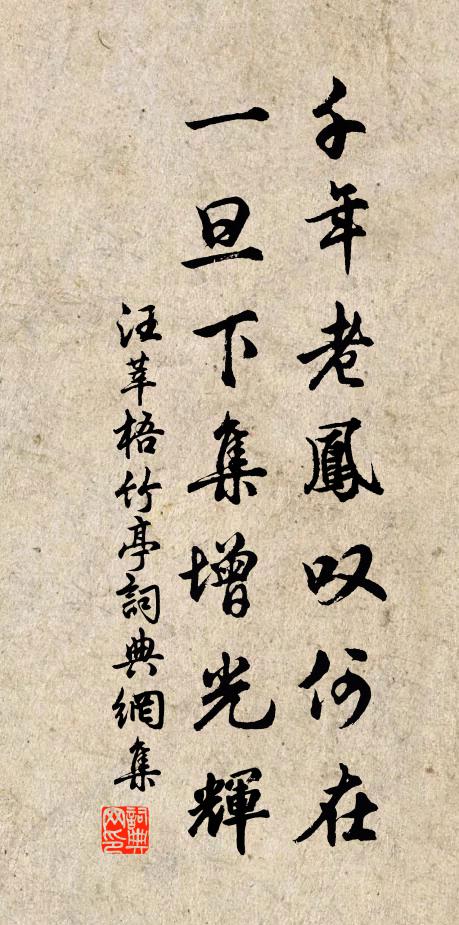 千年老鳳叹何在
一旦下集增光輝
汪莘梧竹亭詞典網集
詞典
网印